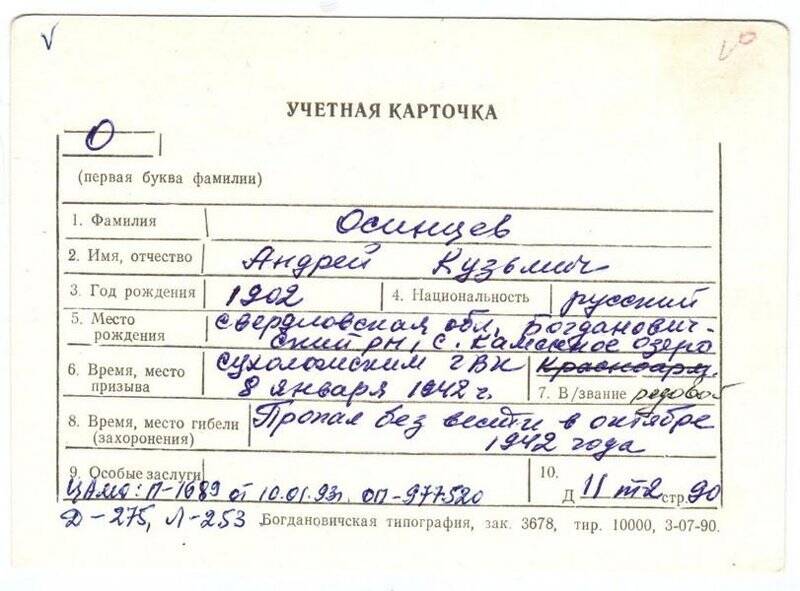 УЧЕТНАЯ КАРТОЧКА
О
(первая буква фамилии)
1. Фамилия Осинцев
2. Имя, отчество Андрей Кузьмич
3. Год рождения 1902 4. Национальность русский
5. Место рождения Свердловская обл, Богданович-
ский рн, с. Каменное озеро
6. Время, место призыва Сухоложским ГВК
8 января 1942 г.
Красноарм.
7. В/звание рядовой
8. Время, место гибели (захоронения) Пропал без вести в октябре
1942 года
9. Особые заслуги
ЦАМО: П-1689 от 10.01.93г. оп-977520
Д-275, Л-253
10.
Д 11 т2 стр. 90
Богдановичская типография, зак. 3678, тир. 10000, 3-07-90.